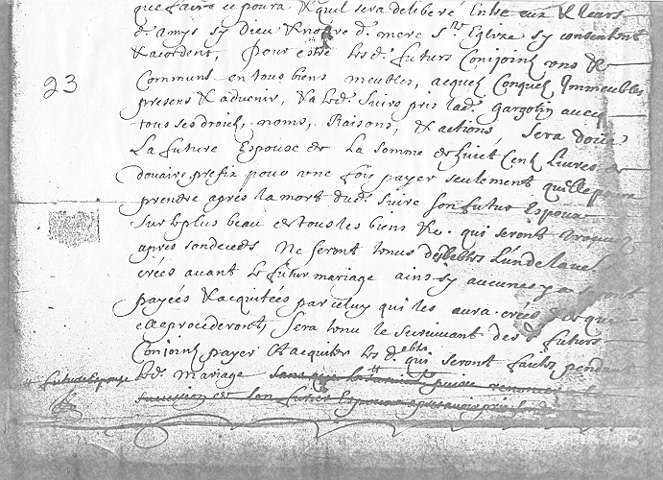 que faire ce poura & quil sera deliberé Entre eux & leurs
d. amys sy Dieu & nostre d. mere Ste Eglize sy consentent
& acordent, Pour estre lesd. futurs Conjoints uns &
23
Communs en tous biens meubles, acquets Conquets Immeubles,
presens & advenir, & a led. Suire pris lad. gargotin avecq
tous ses droits, noms, Raisons, & actions, sera doüée
La future Espouse de La somme de huict Cent Livres de
doüaire prefix pour une fois payer seulement quelle poura
prendre apres la mort dud. Suire son futur Espoux
Sur le plus beau de tous les biens &c. qui seront
apres son deceds Ne seront tenus des debtes L'un de L'autre
créés avant le futur mariage ains sy aucunes y en
payées & acquitées par celuy qui les aura créés &
procederont, Sera tenu le survivant des d. futurs
Conjoints payer & acquiter les d. debtes qui seront faites pendant
led. Mariage sans que
" future Espouse
son futur Espoux